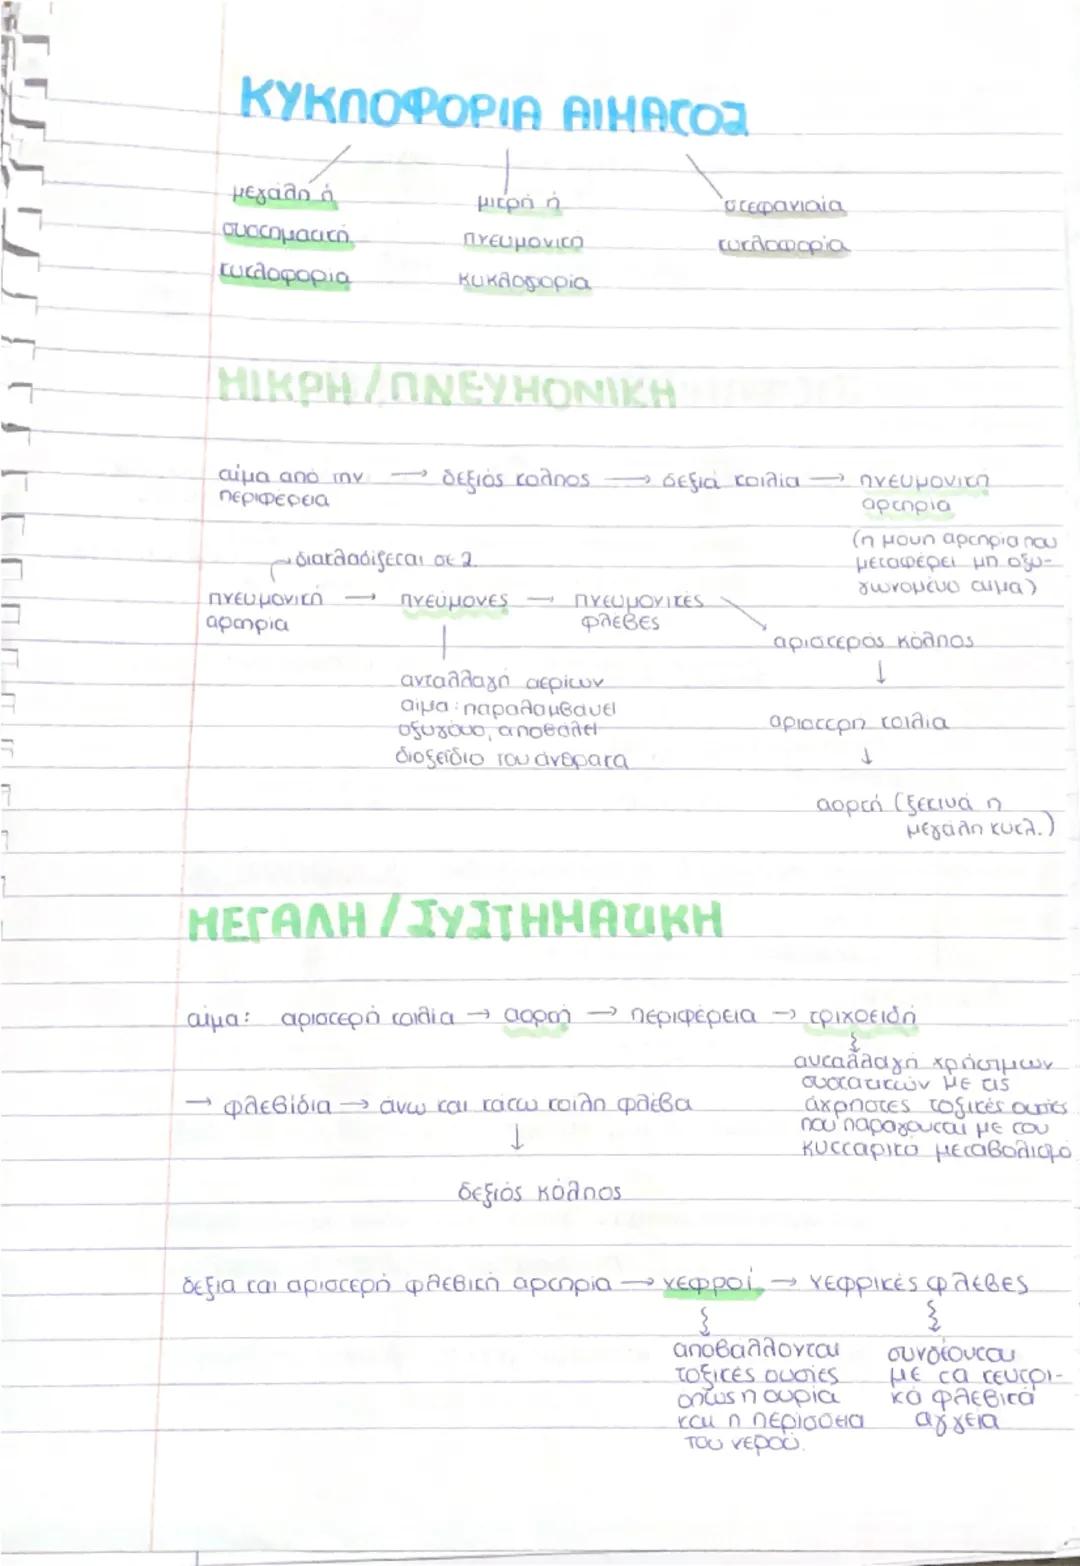 ΚΥΚΛΟΦΟΡΙΑ ΑΙΜΑΤΟΣ
μεγάλη ή
συστηματική
κυκλοφορία
μικρή ή
πνευμονική
κυκλοφορία
στεφανιαία
κυκλοφορία
ΜΙΚΡΗ/ΠΝΕΥΜΟΝΙΚΗ
αίμα από την → δεξιός κόλπος → δεξιά κοιλία → πνευμονική
περιφέρεια
αρτηρία
(η μουη αρτηρία που
μεταφέρει μη οξυ-
γωνομένο αιμα)
διακλαδίζεται σε 2
πνευμονική → πνεύμονες → πνευμονικές
αρτηρία
φλέβες
αριστερός κόλπος
↓
ανταλλαγή αερίων
αίμα: παραλαμβάνει
οξυγόνο, αποβάλει
διοξείδιο του άνθρακα
αριστερη κοιλία
↓
αορτή (ξεκινά η
μεγάλη κυκλ.)
ΜΕΓΑΛΗ/ΣΥΣΤΗΜΑΤΙΚΗ
αίμα: αριστερή κοιλία → αορτή → περιφέρεια → τριχοειδή
ανταλλαγή χρήσιμων
συστατικών με τις
άχρηστες τοξικές ουσίες
που παράγονται με τον
κυτταρικό μεταβολισμό
→ φλεβίδια → άνω και κάτω κοίλη φλέβα
↓
δεξιός κόλπος
δεξια και αριστερή φλεβική αρτηρία → νεφροί → νεφρικές φλέβες
αποβάλλονται
τοξικές ουσίες
όπως η ουρία
και η περίσσεια
του νερού.
συνδέονται
με τα κεντρι-
κά φλεβικά
αγγεία